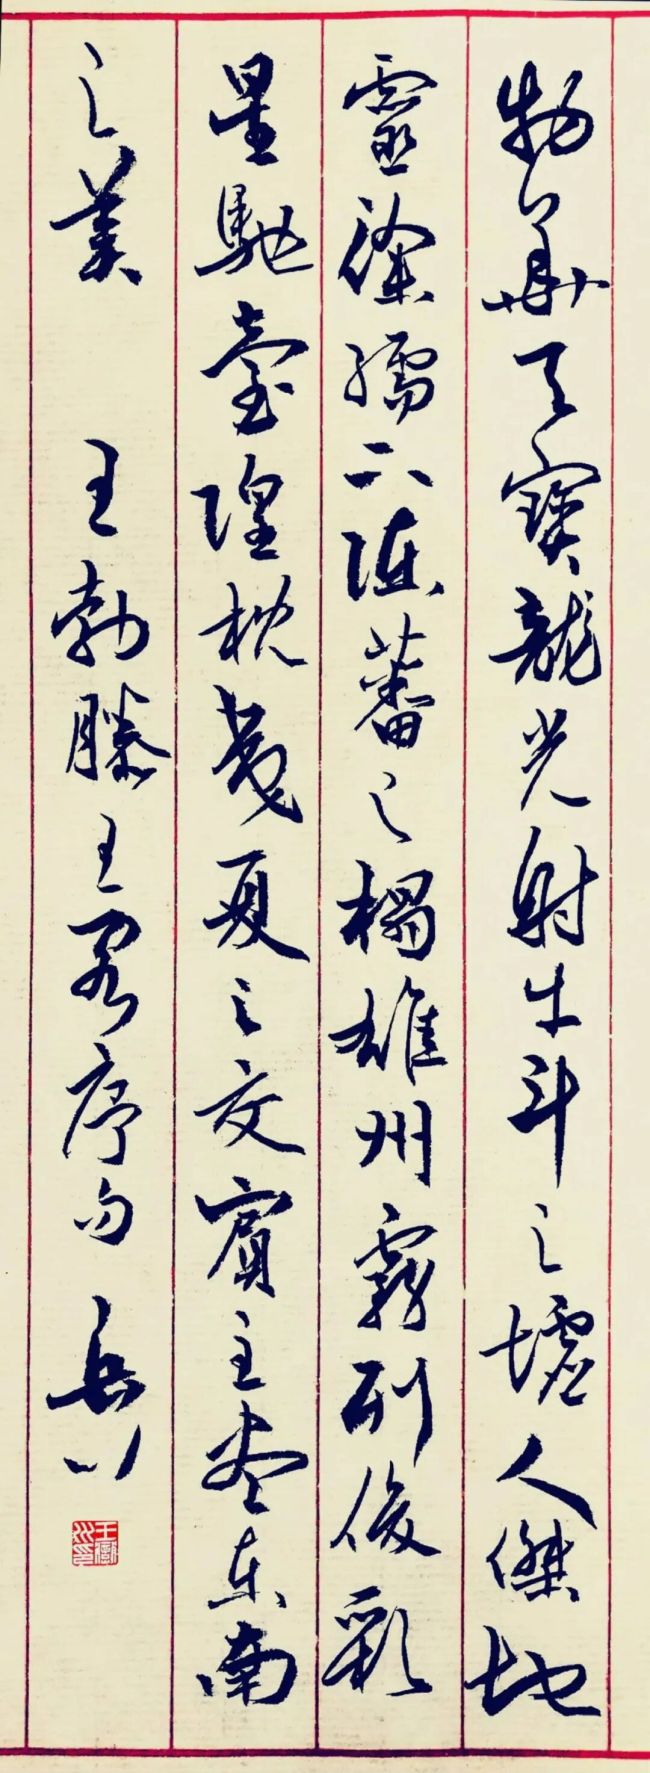 物華天寶龍光射牛斗之墟人傑地
靈徐孺下陳蕃之榻雄州霧列俊彩
星馳臺隍枕夷夏之交賓主盡東南
之美 王勃滕王閣序句 岳川